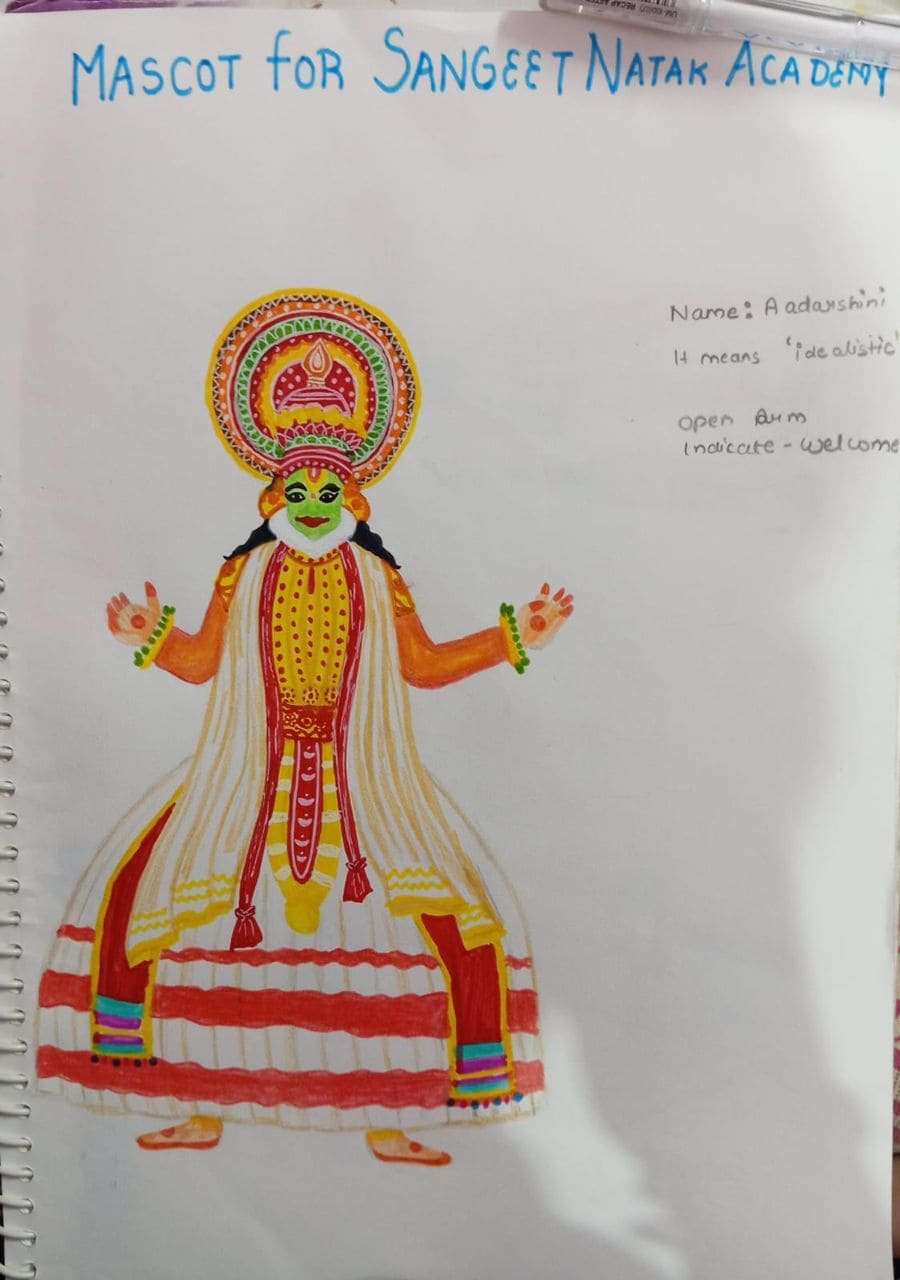 MASCOT FOR SANGEET NATAK ACADEMY
Name: Aadarshini
It means 'idealistic'
open Arm
Indicate - welcome